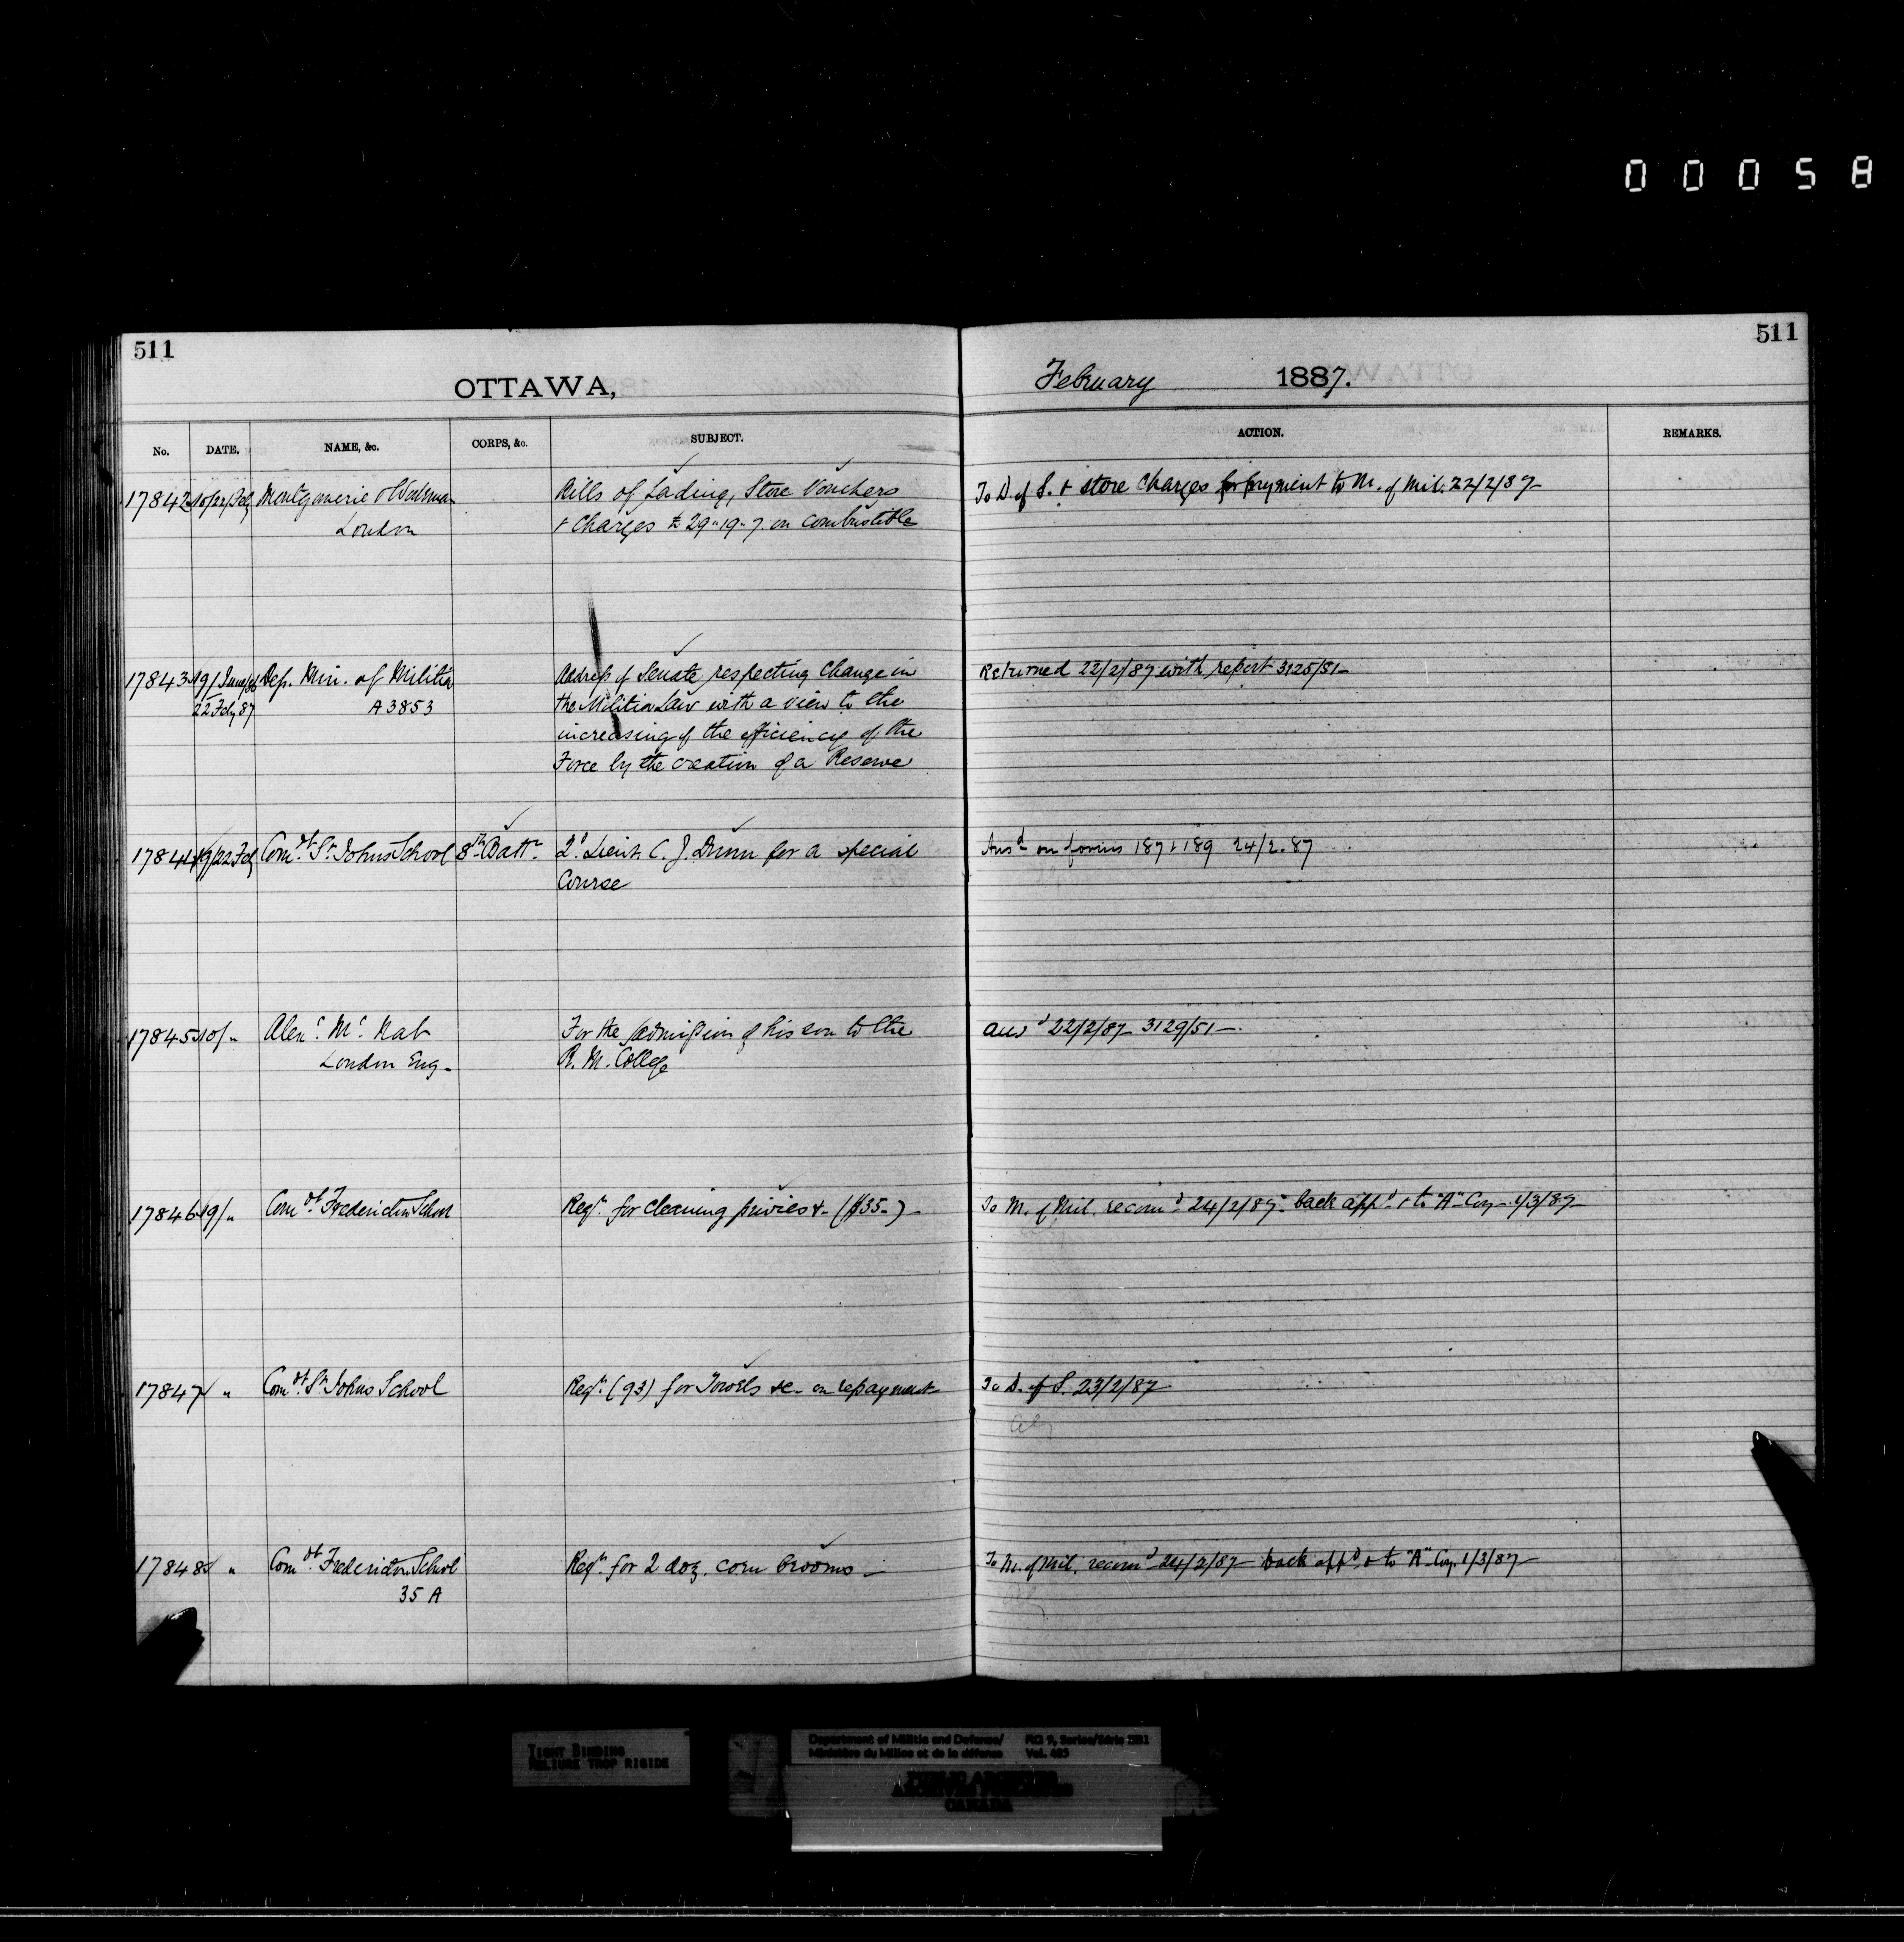 00058
511
511
OTTAWA,
February 1887.
No. DATE. NAME, &c. CORPS, &c. SUBJECT. ACTION. REMARKS.
17842 10/22/Feb Montgomerie & Workman Bills of Lading, Store Vouchers To D. of S. & store charges for payment to M. of Mil. 22/2/87
London & Charges £29"19"7 on combustible
17843 19/June/86 Dep. Min. of Militia Address of Senate respecting change in Returned 22/2/87 with report 3125/51
22 Feby 87 A 3853 the Militia Law with a view to the
increasing of the efficiency of the
Force by the creation of a Reserve
17844 19/22 Feb Comdt St Johns School 8th Battn 2d Lieut. C. J. Dunn for a special Ansd on forms 187 & 189 24/2.87
Course
17845 10/ " Alexr McNab For the admission of his son to the Ansd 22/2/87 3129/51
London Eng. R. M. College
17846 19/ " Comdt Fredericton School Reqn for cleaning privies &c ($35.) To M. of Mil. recomd 24/2/87. back appd & to "A" Coy 1/3/87
17847 " Comdt St Johns School Reqn (93) for Towels &c. on repayment To D. of S. 23/2/87
17848 " Comdt Fredericton School Reqn for 2 doz. corn brooms To M. of Mil. recomd 24/2/87 back appd & to "A" Coy 1/3/87
35 A
TIGHT BINDING
RELIURE TROP RIGIDE
Department of Militia and Defence/ RG 9, Series/Série IIB1
Ministère du Milice et de la défense Vol.
PUBLIC ARCHIVES
ARCHIVES PUBLIQUES
CANADA